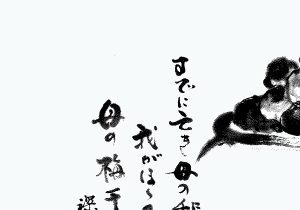 すでに亡き母の
我がほ
母の梅干
深